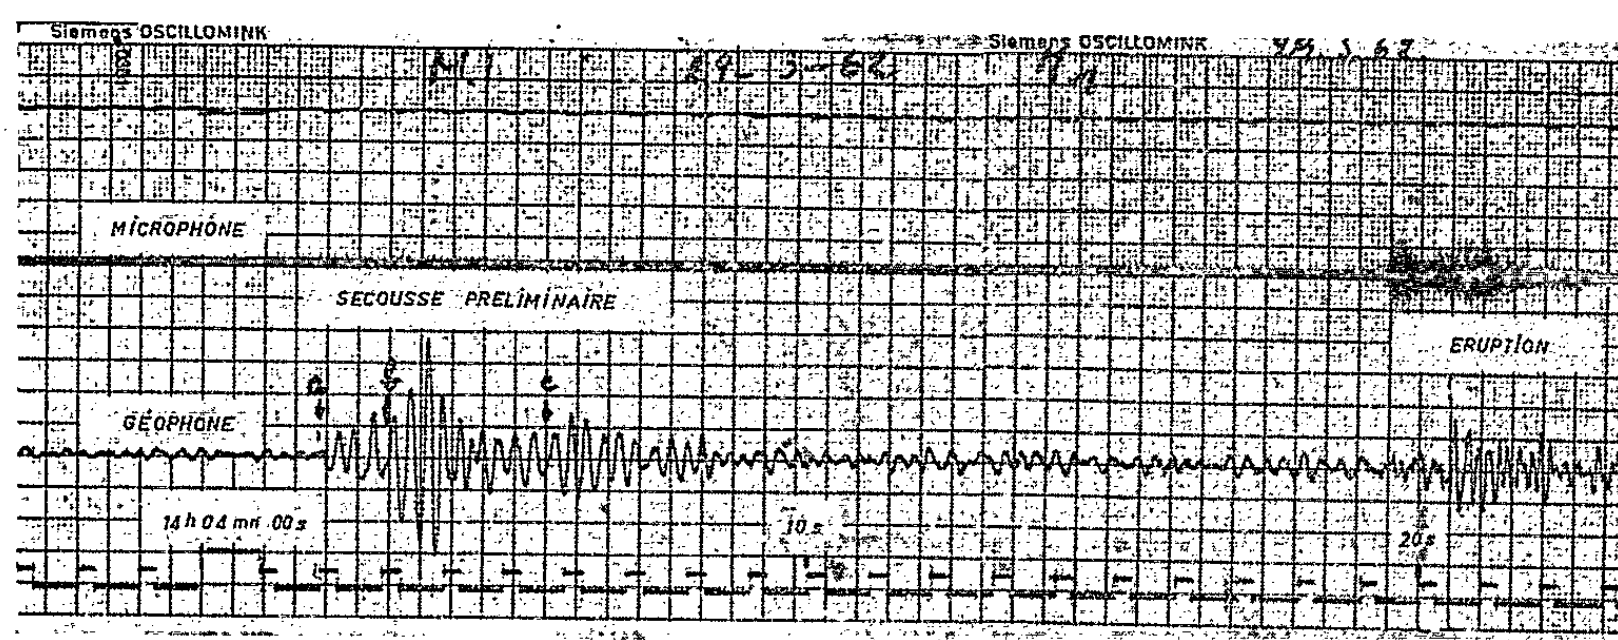 Siemens OSCILLOMINK
Siemens OSCILLOMINK
MICROPHONE
SECOUSSE PRELIMINAIRE
ERUPTION
GEOPHONE
14h 04 mn 00s
10s
20s